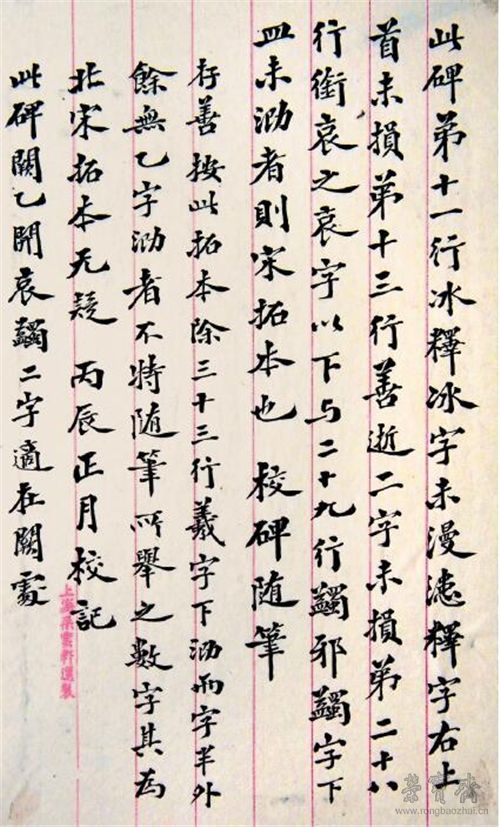 此碑弟十一行冰釋冰字未漫漶釋字右上
首未損弟十三行善逝二字未損弟二十八
行銜哀之哀字以下与二十九行蠲邪蠲字下
皿未泐者則宋拓本也 校碑随筆
存善按此拓本除三十三行羲字下泐而字半外
餘無乙字泐者不特随筆所舉之數字其為
北宋拓本无疑 丙辰正月校記
此碑闕乙開哀蠲二字適在闕處
上海朵雲軒選製
榮寶齋
www.rongbaozhai.cn